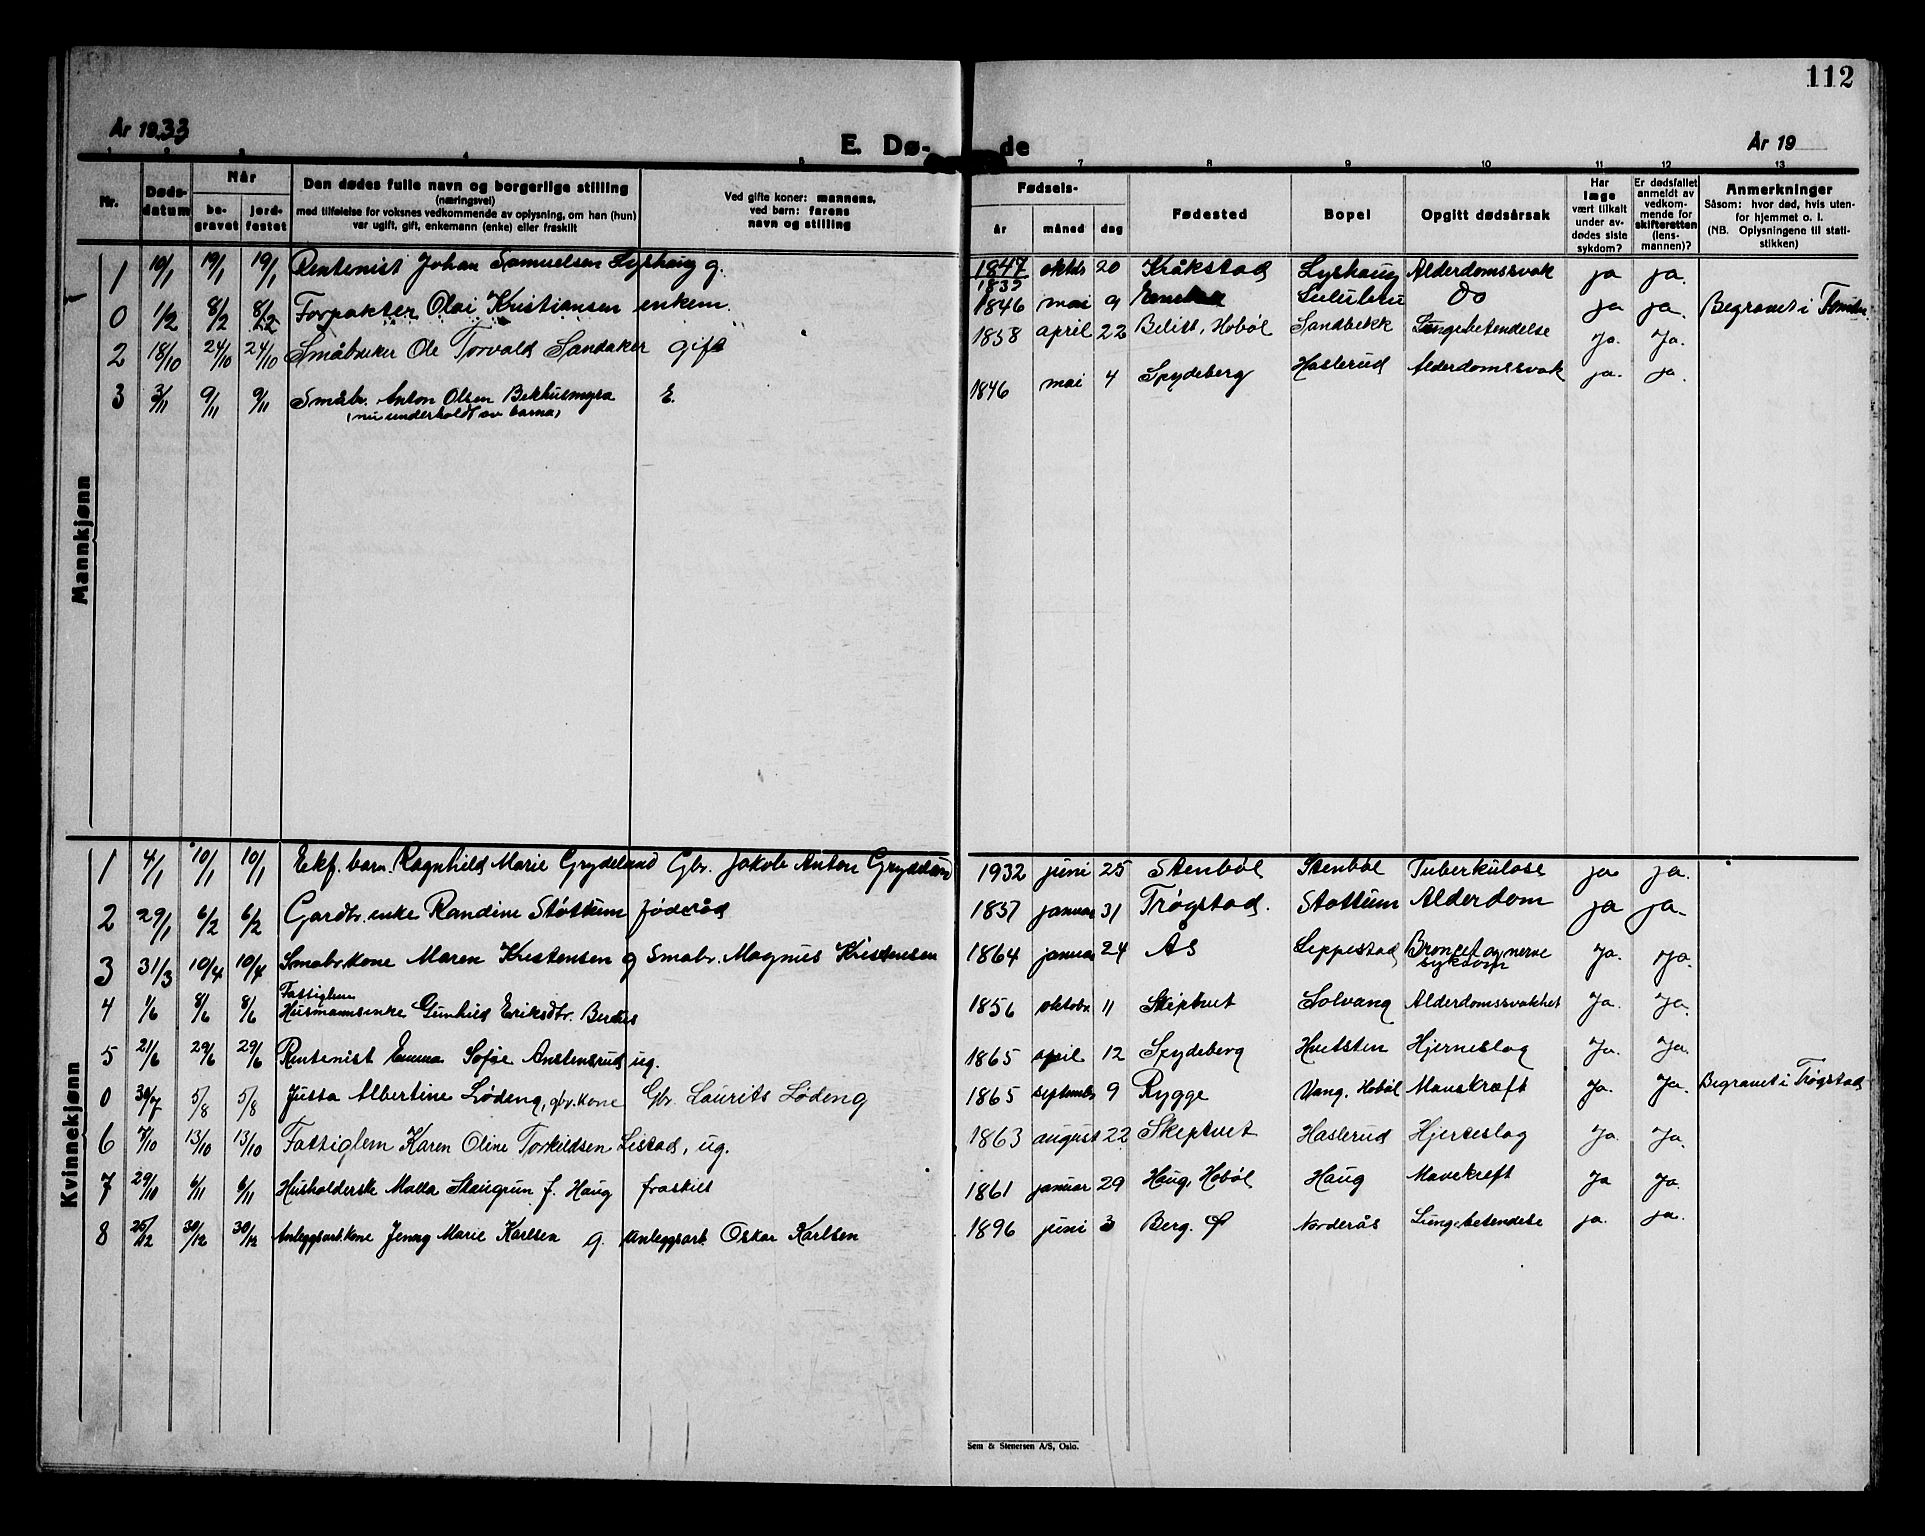 112
År 1933
E. Dø-
de
År 19
1 2 3 4 5 7 8 9 10 11 12 13
Nr. Døds-datum Når be-gravet jord-festet Den dødes fulle navn og borgerlige stilling (næringsvei) med tilføielse for voksnes vedkommende av oplysning, om han (hun) var ugift, gift, enkemann (enke) eller fraskilt Ved gifte koner: mannens, ved barn: farens navn og stilling Fødsels- år måned dag Fødested Bopel Opgitt dødsårsak Har læge vært tilkalt under av-dødes siste sykdom? Er dødsfallet anmeldt av vedkom-mende for skifteretten (lens-mannen)? Anmerkninger Såsom: hvor død, hvis uten-for hjemmet o. l. (NB. Oplysningene til stati-stikken)
Mannkjønn
1 10/1 19/1 19/1 Rentenist Johan Samuelsen Lyshaug g. 1847 oktbr 20 Kråkstad Lyshaug Alderdomssvak ja ja.
1835
0 1/2 8/2 8/2 Forpakter Olai Kristiansen enkem. 1846 mai 9 Do ja ja. Begravet i
2 18/10 24/10 24/10 Småbruker Ole Torvald Sandaker gift 1858 april 22 Hobøl Sandbekk Lungebetendelse Ja. Ja.
3 3/11 9/11 9/11 Småbr. Anton Olsen Bekhusmyra E. 1846 mai 4 Spydeberg Haslerud Alderdomssvak ja. ja.
(nu underholdt av barna)
Kvinnekjønn
1 4/1 10/1 10/1 Ekf. barn. Ragnhild Marie Grydeland Gbr. Jakob Anton Grydeland 1932 juni 25 Stenbøl Stenbøl Tuberkulose ja ja.
2 29/1 6/2 6/2 Gardbr.enke Randine Støttum føderåd 1857 januar 31 Trøgstad. Støttum Alderdom ja ja-
3 31/3 10/4 10/4 Småbr.kone Maren Kristensen g Småbr. Magnus Kristensen 1864 januar 24 Ås Leppestad og nerve Ja. Ja.
sykdom
Fattiglem
4 1/6 8/6 8/6 Husmannsenke Gunhild Eriksdtr. 1856 oktobr. 11 Skiptvet Solvang Alderdomssvakhet Ja. Ja.
5 21/6 29/6 29/6 Rentenist Emma Sofie Anstensrud ug. 1865 april 12 Spydeberg Hvitsten Hjerneslag Ja. Ja.
0 30/7 5/8 5/8 Jussa Albertine Løding, gbr.kone Gbr. Laurits Løding 1865 september 9 Rygge Vang, Hobøl Mavekræft Ja. Ja. Begravet i Trøgstad
6 7/10 13/10 13/10 Fattiglem Karen Oline Torkildsen Listad, ug. 1863 august 22 Skeptvet Haslerud Hjerteslag Ja. Ja.
7 29/10 6/11 6/11 Husholderske Malla Skaugrun f. Haug fraskilt 1861 januar 29 Haug, Hobøl Haug Mavekreft Ja Ja.
8 25/12 30/12 30/12 Anleggsarb.kone Jenny Marie Karlsen g. Anleggsarb. Oskar Karlsen 1896 juni 3 Berg. Ø Norderås Lungebetendelse ja. ja.
Sem & Stenersen A/S, Oslo.